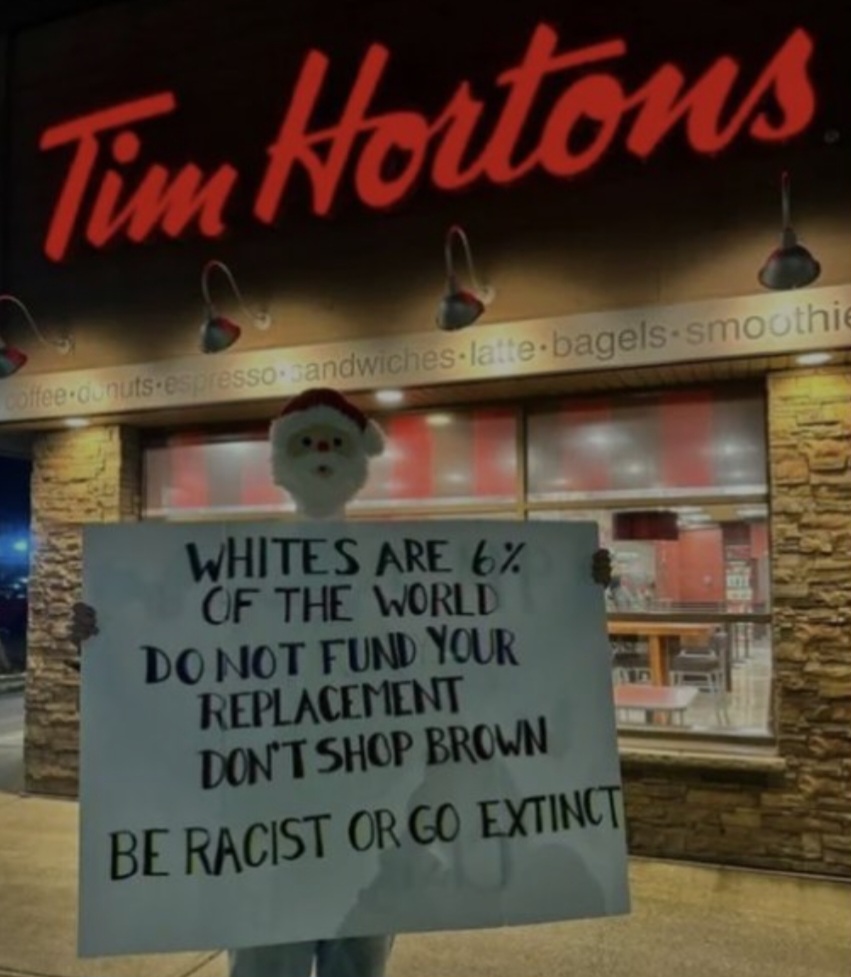 Tim Hortons
coffee·donuts·espresso·sandwiches·latte·bagels·smoothie
WHITES ARE 6%
OF THE WORLD
DO NOT FUND YOUR
REPLACEMENT
DON'T SHOP BROWN
BE RACIST OR GO EXTINCT